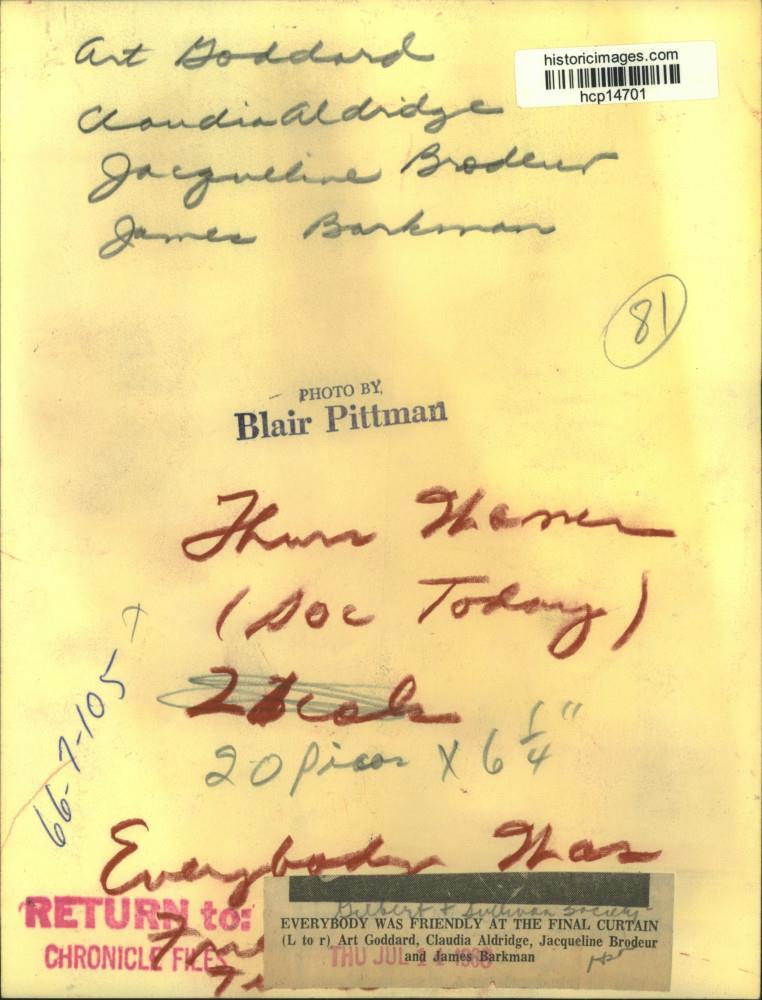 Art Goddard
Claudia Aldridge
Jacqueline Brodeur
James Barkman
historicimages.com
hcp14701
81
PHOTO BY
Blair Pittman
Thurs
(Soc Today)
2 cols
20 picas X 6 1/4"
66-7-105
Everybody Was
RETURN to:
CHRONICLE FILES
Gilbert & Sullivan Society
EVERYBODY WAS FRIENDLY AT THE FINAL CURTAIN
(L to r) Art Goddard, Claudia Aldridge, Jacqueline Brodeur
and James Barkman
THU JUL 14 1966